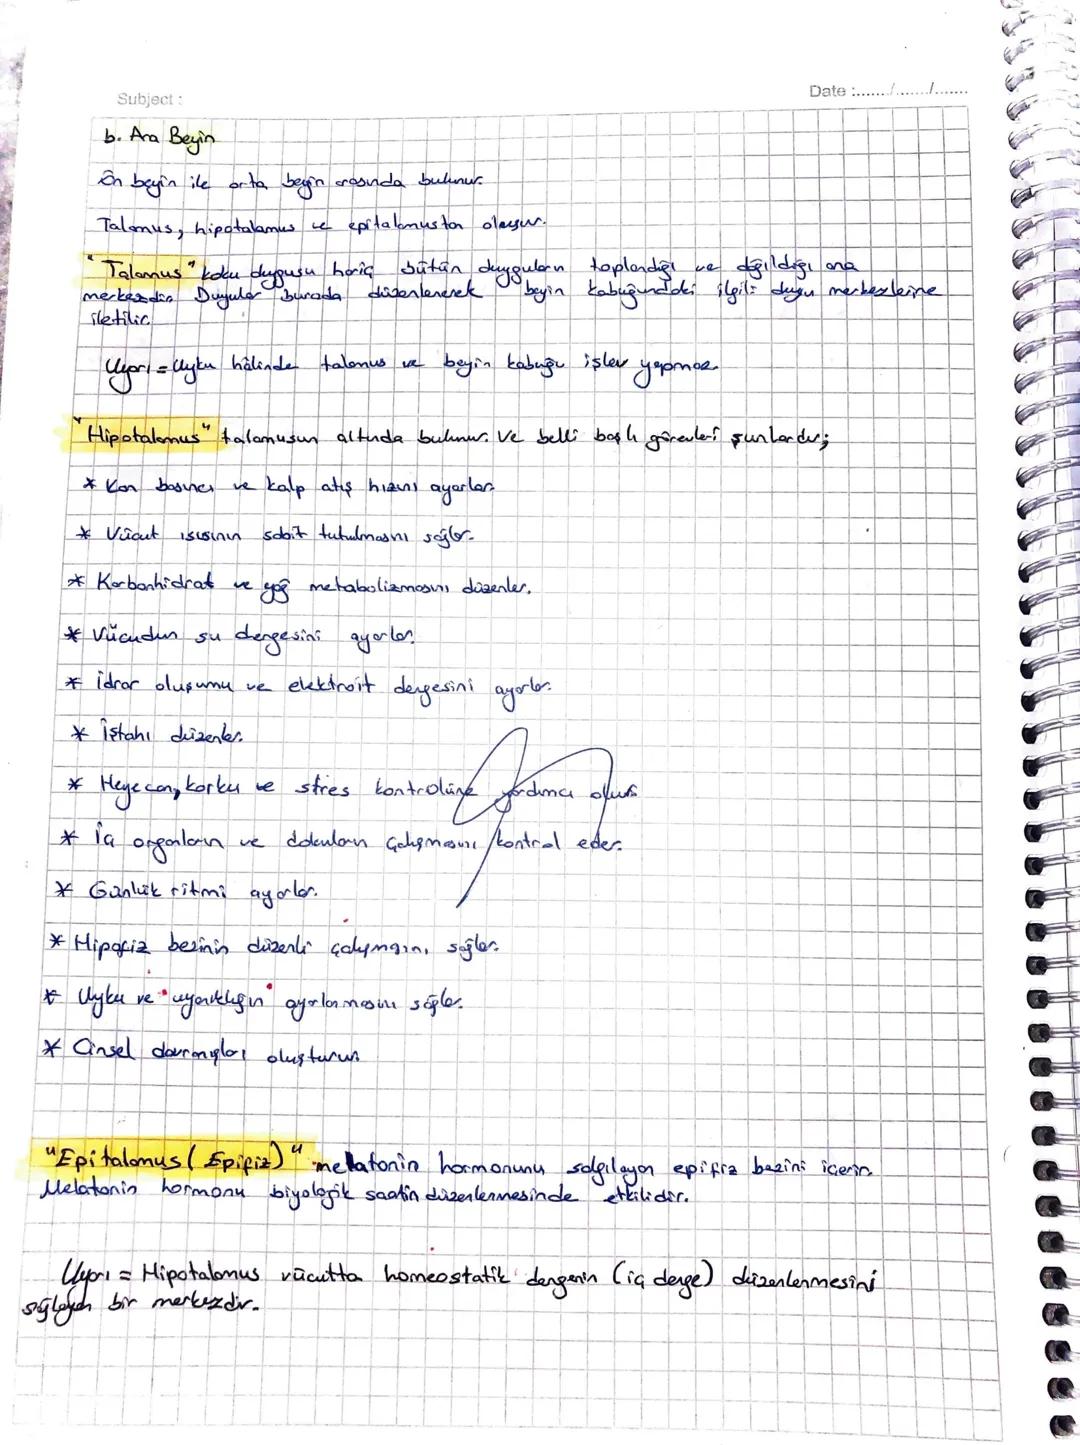 Subject :
Date :......./......./.......
b. Ara Beyin
Ön beyin ile orta beyin arasında bulunur.
Talamus, hipotalamus ve epitalamustan oluşur.
"Talamus" koku duygusu hariç bütün duyguların toplandığı ve dağıldığı ana
merkezdir. Duyular burada düzenlenerek beyin kabuğundaki ilgili duyu merkezlerine
iletilir.
Uyarı = Uyku hâlinde talamus ve beyin kabuğu işlev yapmaz.
"Hipotalamus" talamusun altında bulunur. Ve belli başlı görevleri şunlardır;
* Kan basıncı ve kalp atış hızını ayarlar.
* Vücut ısısının sabit tutulmasını sağlar.
* Karbonhidrat ve yağ metabolizmasını düzenler.
* Vücudun su dengesini ayarlar.
* İdrar oluşumu ve elektroit dengesini ayarlar.
* İştahı düzenler.
* Heyecan, korku ve stres kontrolüne yardımcı olur.
* İç organların ve dokuların çalışmasını kontrol eder.
* Günlük ritmi ayarlar.
* Hipofiz bezinin düzenli çalışmasını sağlar.
* Uyku ve uyanıklığın ayarlanmasını sağlar.
* Cinsel davranışları oluşturur.
"Epitalamus (Epifiz)" melatonin hormonunu salgılayan epifiz bezini içerir.
Melatonin hormonu biyolojik saatin düzenlenmesinde etkilidir.
Uyarı = Hipotalamus vücutta homeostatik dengenin (iç denge) düzenlenmesini
sağlayan bir merkezdir.